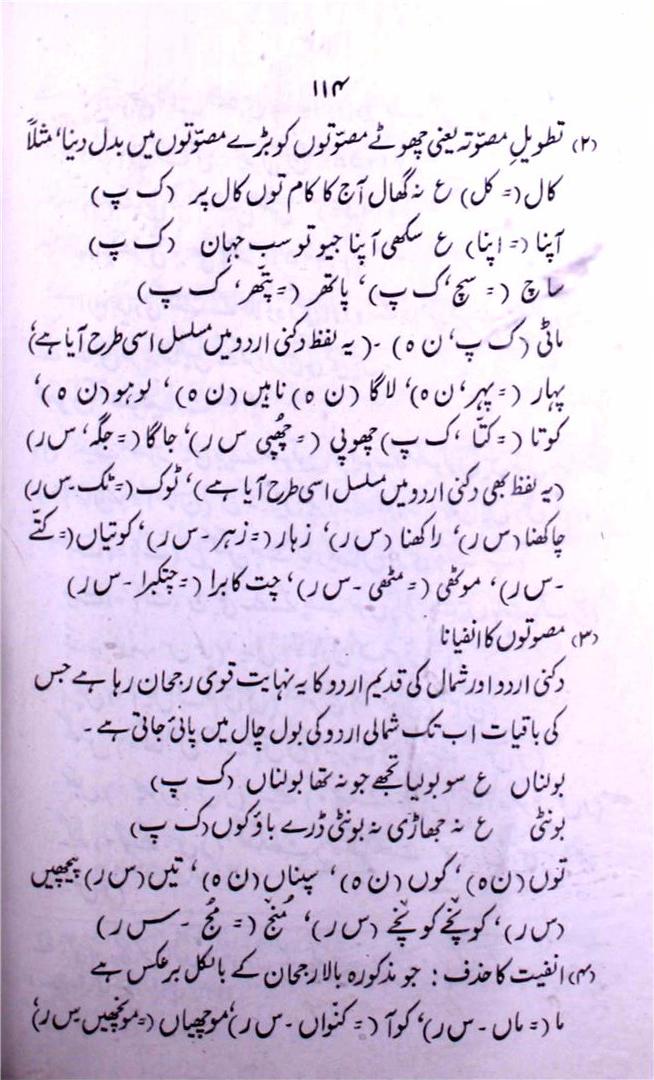 ۱۱۴
(۲) تطویلِ مصوّتہ یعنی چھوٹے مصوّتوں کو بڑے مصوّتوں میں بدل دینا، مثلاً
کال (= کل) ع نہ گھال آج کا کام توں کال پر (ک پ)
آپنا (= اپنا) ع سکھی آپنا جیو تو سب جہان (ک پ)
ساچ (= سچ، ک پ)، پاتھر (= پتّھر، ک پ)
ماٹی (ک پ، ن ہ) ۔ (یہ لفظ دکنی اردو میں مسلسل اسی طرح آیا ہے)،
پہار (= پہر، ن ہ)، لاگا (ن ہ) ناہیں (ن ہ)، لوہو (ن ہ)،
کوتا (= کتّا، ک پ) چھوپی (= چُھپی س ر)، جاگا (= جگہ، س ر)
(یہ لفظ بھی دکنی اردو میں مسلسل اسی طرح آیا ہے)، ٹوک (= ٹک۔ س ر)
چاکھنا (س ر)، راکھنا (س ر)، زہار (= زہر۔ س ر)، کوتیاں (= کتّے
۔ س ر)، موٹھی (= مٹھی ۔ س ر)، چت کابرا (= چتکبرا ۔ س ر)
(۳) مصوتوں کا انفیانا
دکنی اردو اور شمال کی قدیم اردو کا یہ نہایت قوی رجحان رہا ہے جس
کی باقیات اب تک شمالی اردو کی بول چال میں پائی جاتی ہے ۔
بولناں ع سو بولیا تجھے جو نہ تھا بولناں (ک پ)
بونٹی ع نہ جھاڑی نہ بونٹی ڈرے باؤ کوں (ک پ)
توں (ن ہ)، کوں (ن ہ)، سپناں (ن ہ)، تیں (س ر) پیچھیں
(س ر)، کونچے کونچے (س ر)، مُنج (= مُج ۔ س ر)
(۴) انفیت کا حذف : جو مذکورہ بالا رجحان کے بالکل برعکس ہے
ما (= ماں ۔ س ر)، کوآ (= کنواں ۔ س ر)، موچھیاں (= مونچھیں س ر)،